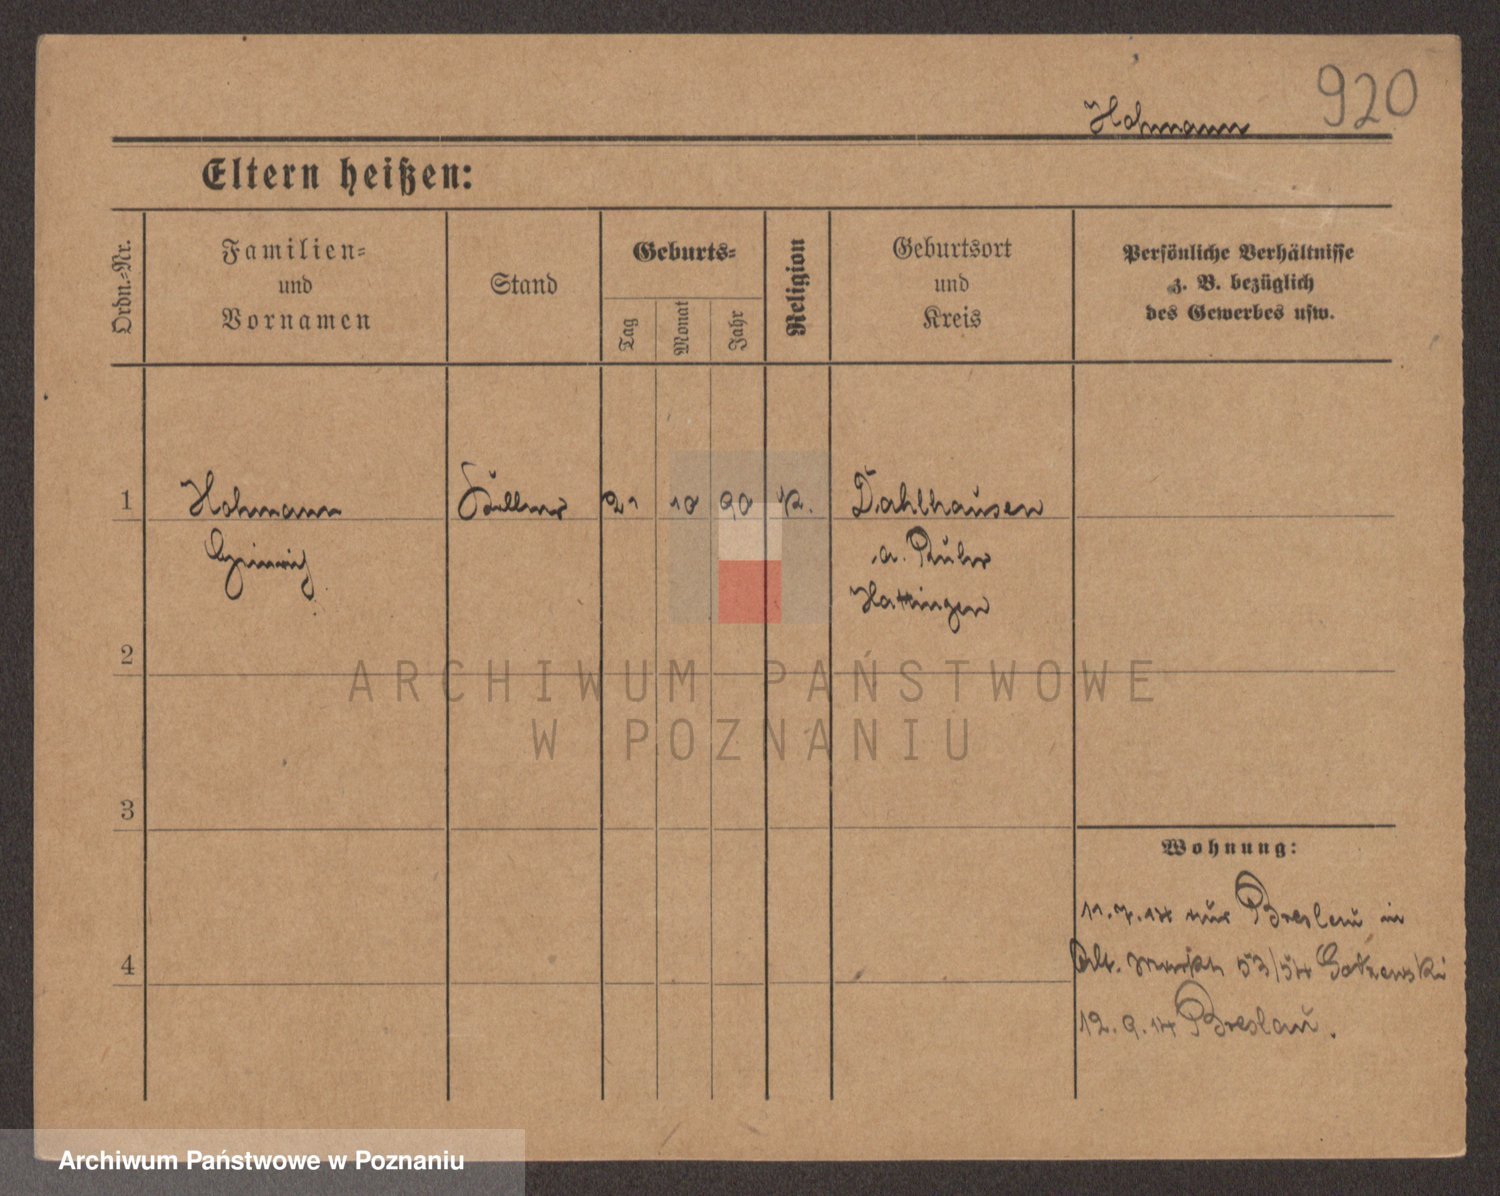 920
Hohmann
Eltern heißen:
Ordn.-Nr.
Familien-
und
Vornamen
Stand
Geburts-
Tag
Monat
Jahr
Religion
Geburtsort
und
Kreis
Persönliche Verhältnisse
z. B. bezüglich
des Gewerbes usw.
1 Hohmann Kellner 21 10 90 k. Dahlhausen
Heinrich a. Ruhr
Hattingen
2
ARCHIWUM PAŃSTWOWE
W POZNANIU
3
Wohnung:
11.7.14 aus Breslau in
4
Alt. Markt 53/54
12.9.14 Breslau.
Archiwum Państwowe w Poznaniu